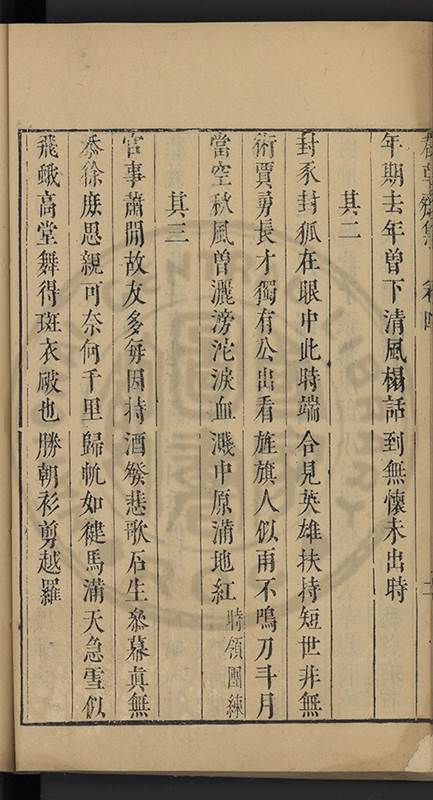 年期去年曾下清風榻話到無懷未出時
其二
封豕封狐在眼中此時端合見英雄扶持短世非無
術賈勇長才獨有公出看旌旗人似雨不鳴刀斗月
當空秋風曾灑滂沱淚血濺中原滿地紅時領團練
其三
官事蕭閒故友多每因持酒發悲歌石生參幕真無
忝徐庶思親可奈何千里歸帆如健馬滿天急雪似
飛蛾高堂舞得斑衣破也勝朝衫剪越羅